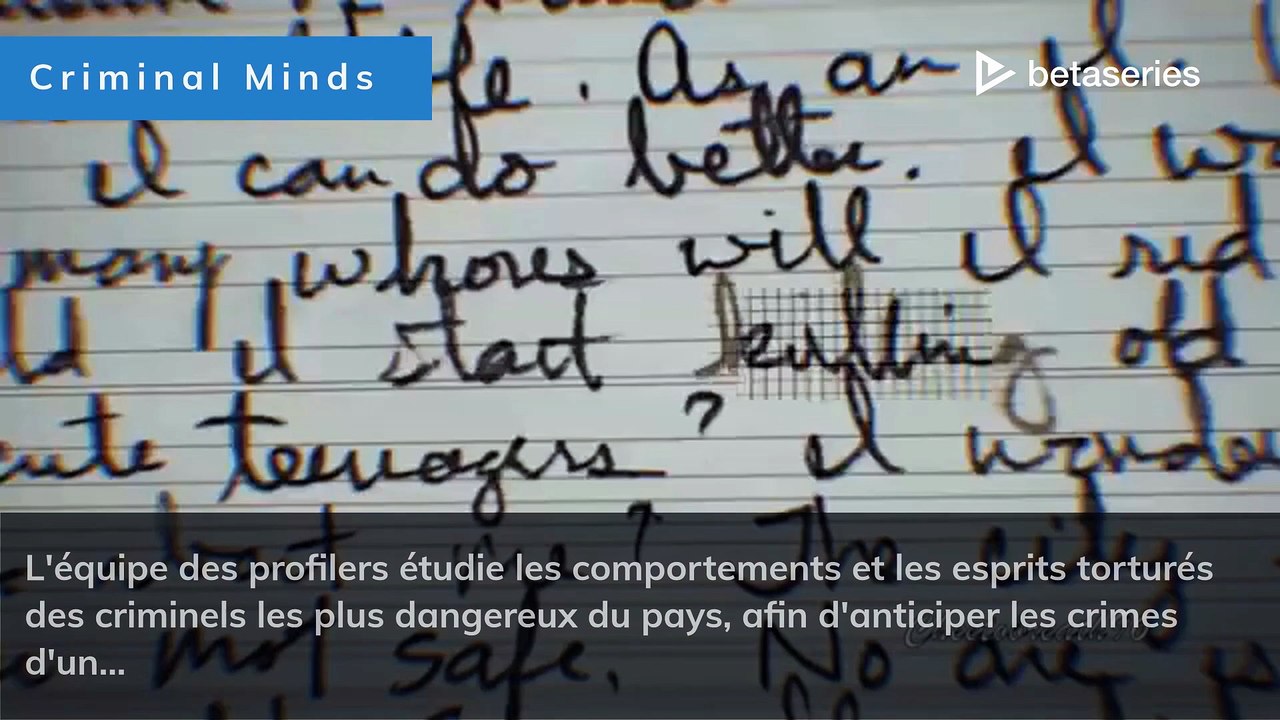 Criminal Minds
betaseries
fe. As an
I can do better. I wo
many whores will I rid
ld I start killing old
cute teenagers? I wonder
? The city
not safe. No one is
L'équipe des profilers étudie les comportements et les esprits torturés
des criminels les plus dangereux du pays, afin d'anticiper les crimes
d'un...